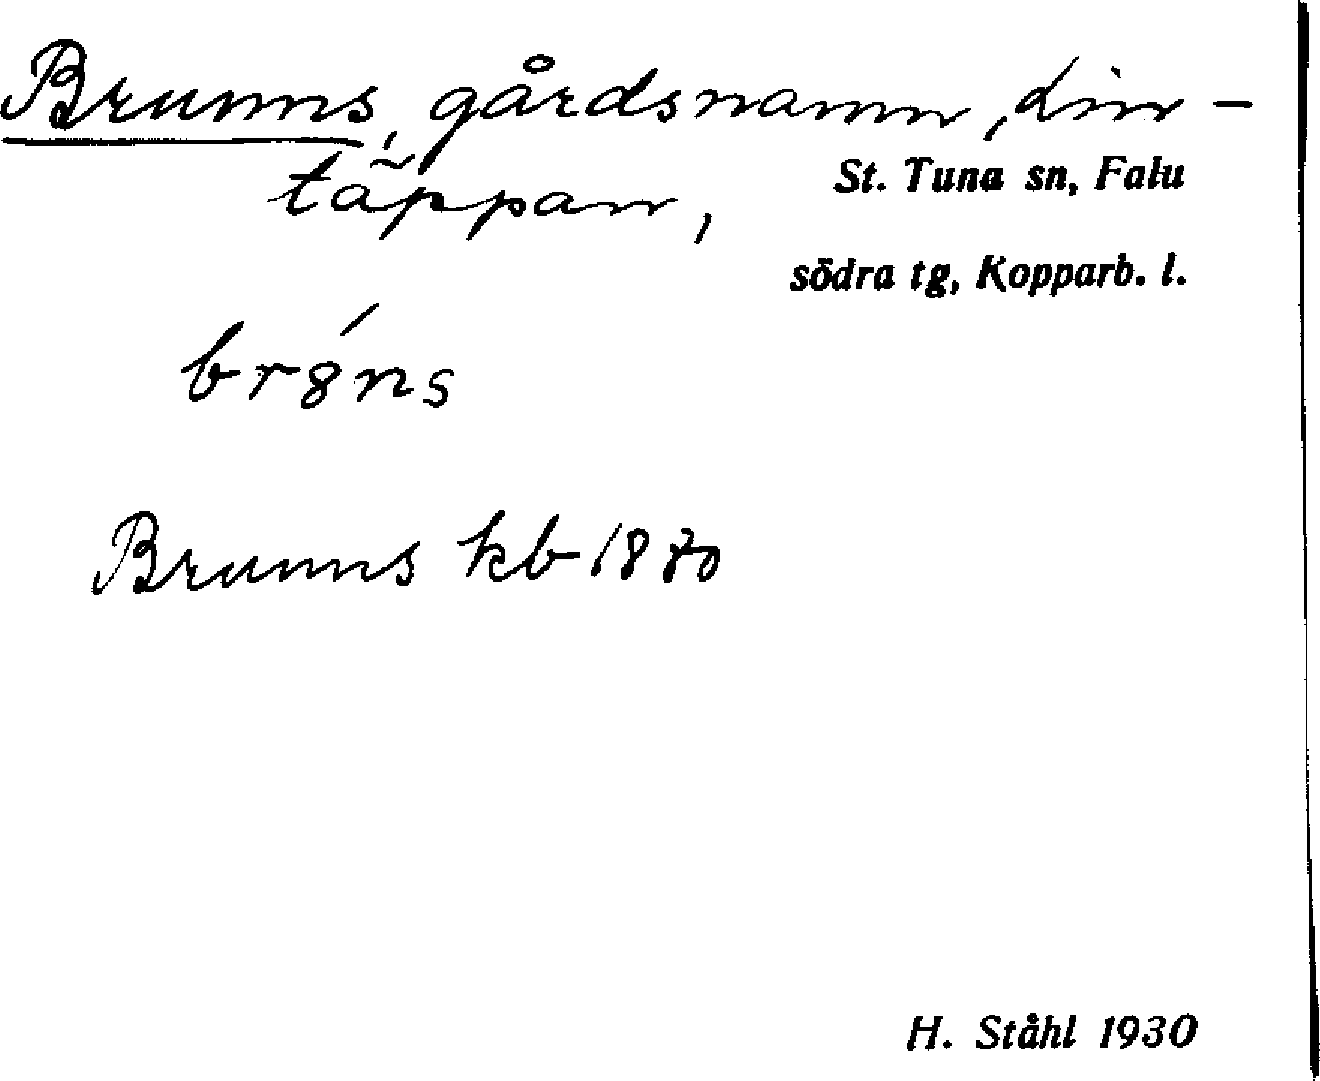 Brunns, gårdsnamn, Lin-
täppan,
St. Tuna sn, Falu
södra tg, Kopparb. l.
br8́ns
Brunns kb 1870
H. Ståhl 1930